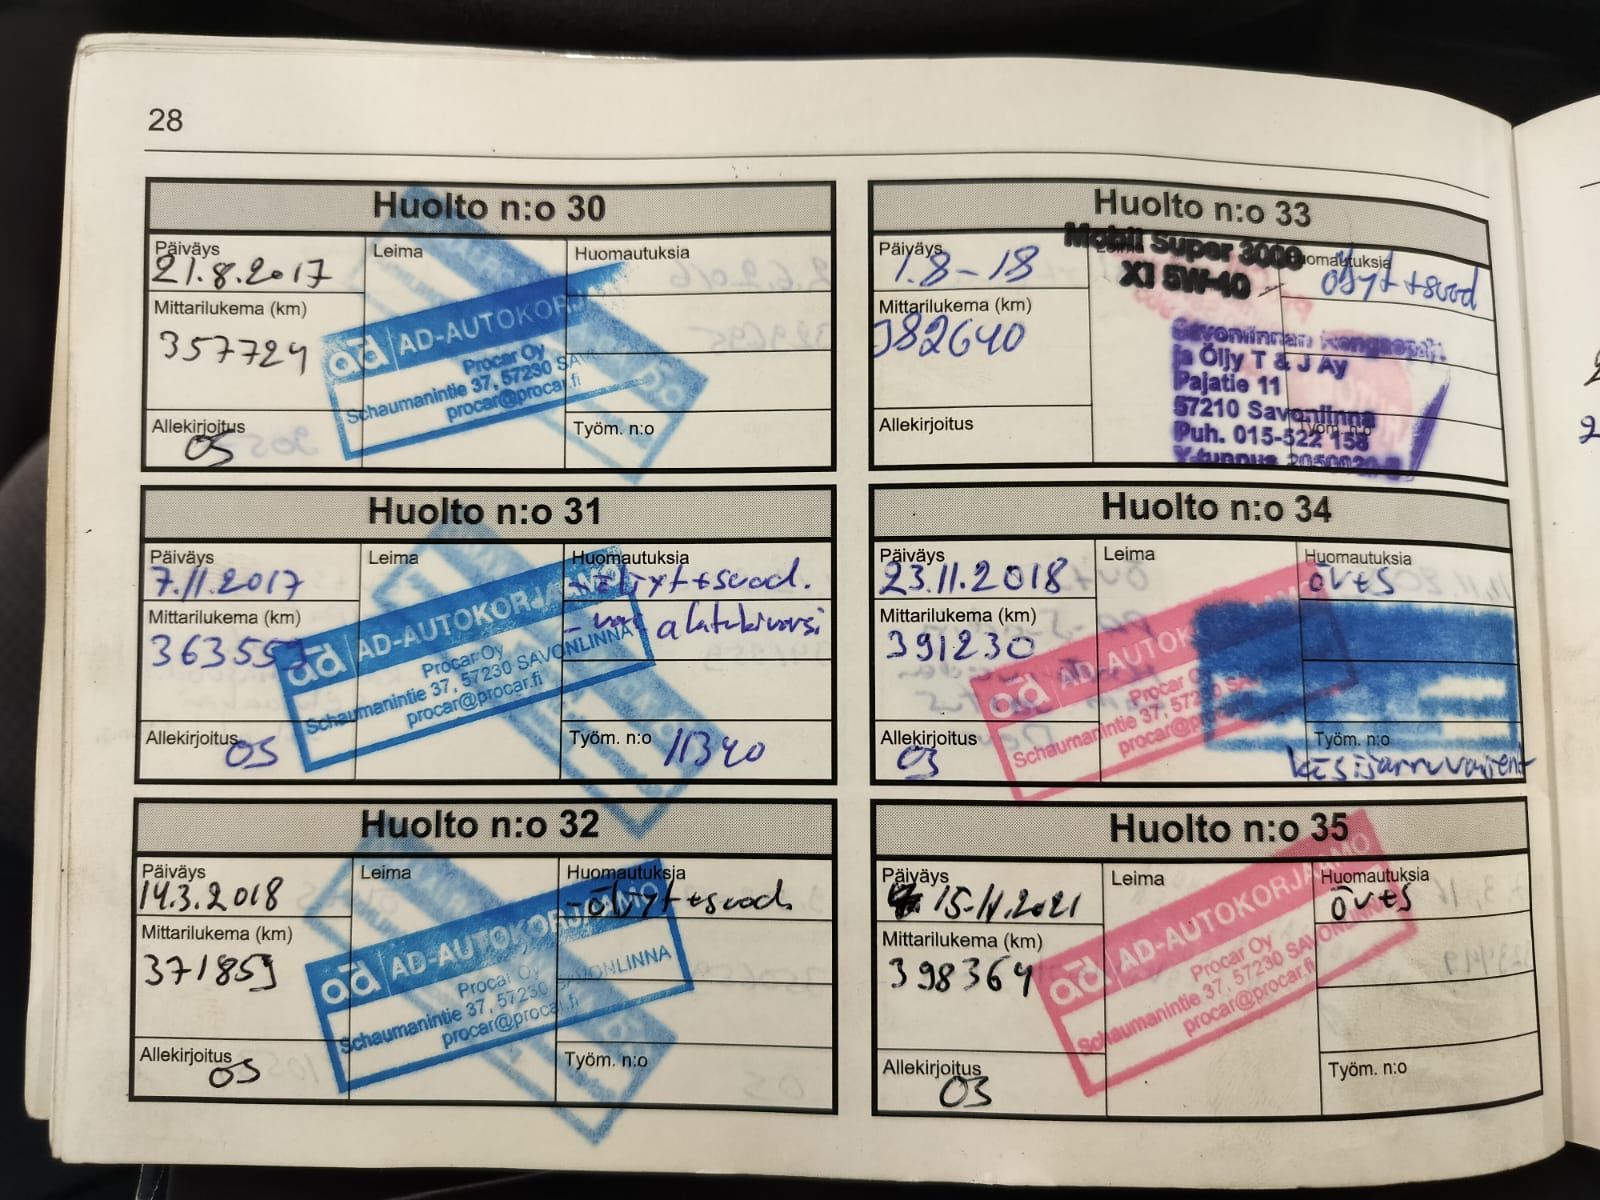 28
Huolto n:o 30
Päiväys
21.8.2017
Leima
Huomautuksia
Mittarilukema (km)
357724
AD-AUTOKORJ
Procar Oy
Schaumanintie 37, 57230 SAV
procar@procar.fi
Allekirjoitus
05
Työm. n:o
Huolto n:o 31
Päiväys
7.11.2017
Leima
Huomautuksia
- öljyt+suod.
alatukivarsi
Mittarilukema (km)
363553
ad AD-AUTOKORJA
Procar Oy
Schaumanintie 37, 57230 SAVONLINNA
procar@procar.fi
Allekirjoitus
05
Työm. n:o
11340
Huolto n:o 32
Päiväys
14.3.2018
Leima
Huomautuksia
-öljyt+suod.
Mittarilukema (km)
371859
ad AD-AUTOKORJAAMO
Procar Oy
Schaumanintie 37, 57230 SAVONLINNA
procar@procar.fi
Allekirjoitus
05
Työm. n:o
Huolto n:o 33
Päiväys
1.8-18
Mobil Super 3000
X1 5W-40
Huomautuksia
öljyt+suod
Mittarilukema (km)
382640
Savonlinnan Rengasopti
ja Öljy T & J Ay
Pajatie 11
57210 Savonlinna
Puh. 015-522 158
Y-tunnus
Allekirjoitus
Työm. n:o
Huolto n:o 34
Päiväys
23.11.2018
Leima
Huomautuksia
öv+s
Mittarilukema (km)
391230
ad AD-AUTOK
Procar O
Schaumanintie 37, 57230 SA
procar@pro
Allekirjoitus
03
Työm. n:o
Huolto n:o 35
Päiväys
15-11.2021
Leima
Huomautuksia
öv+s
Mittarilukema (km)
398364
ad AD-AUTOKORJAAMO
Procar Oy
Schaumanintie 37, 57230 SAVONLINNA
procar@procar.fi
Allekirjoitus
03
Työm. n:o